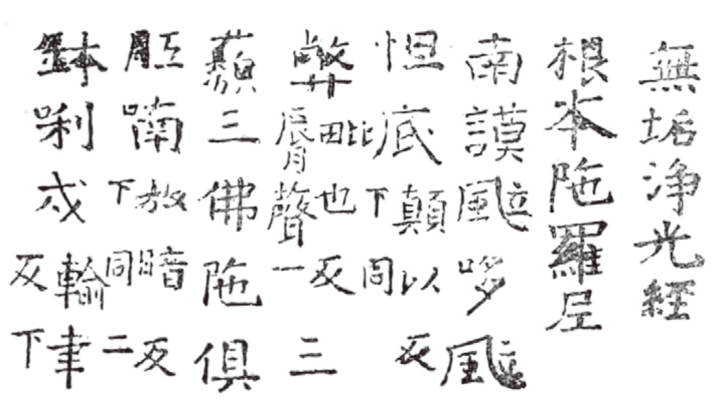 無垢淨光經
根本陁羅尼
南謨颯哆颯
怛底顛以反下同
弊毗也反脣聲一三
藐三佛陁俱
胝喃放音反下同二
鉢唎戍輸聿反下